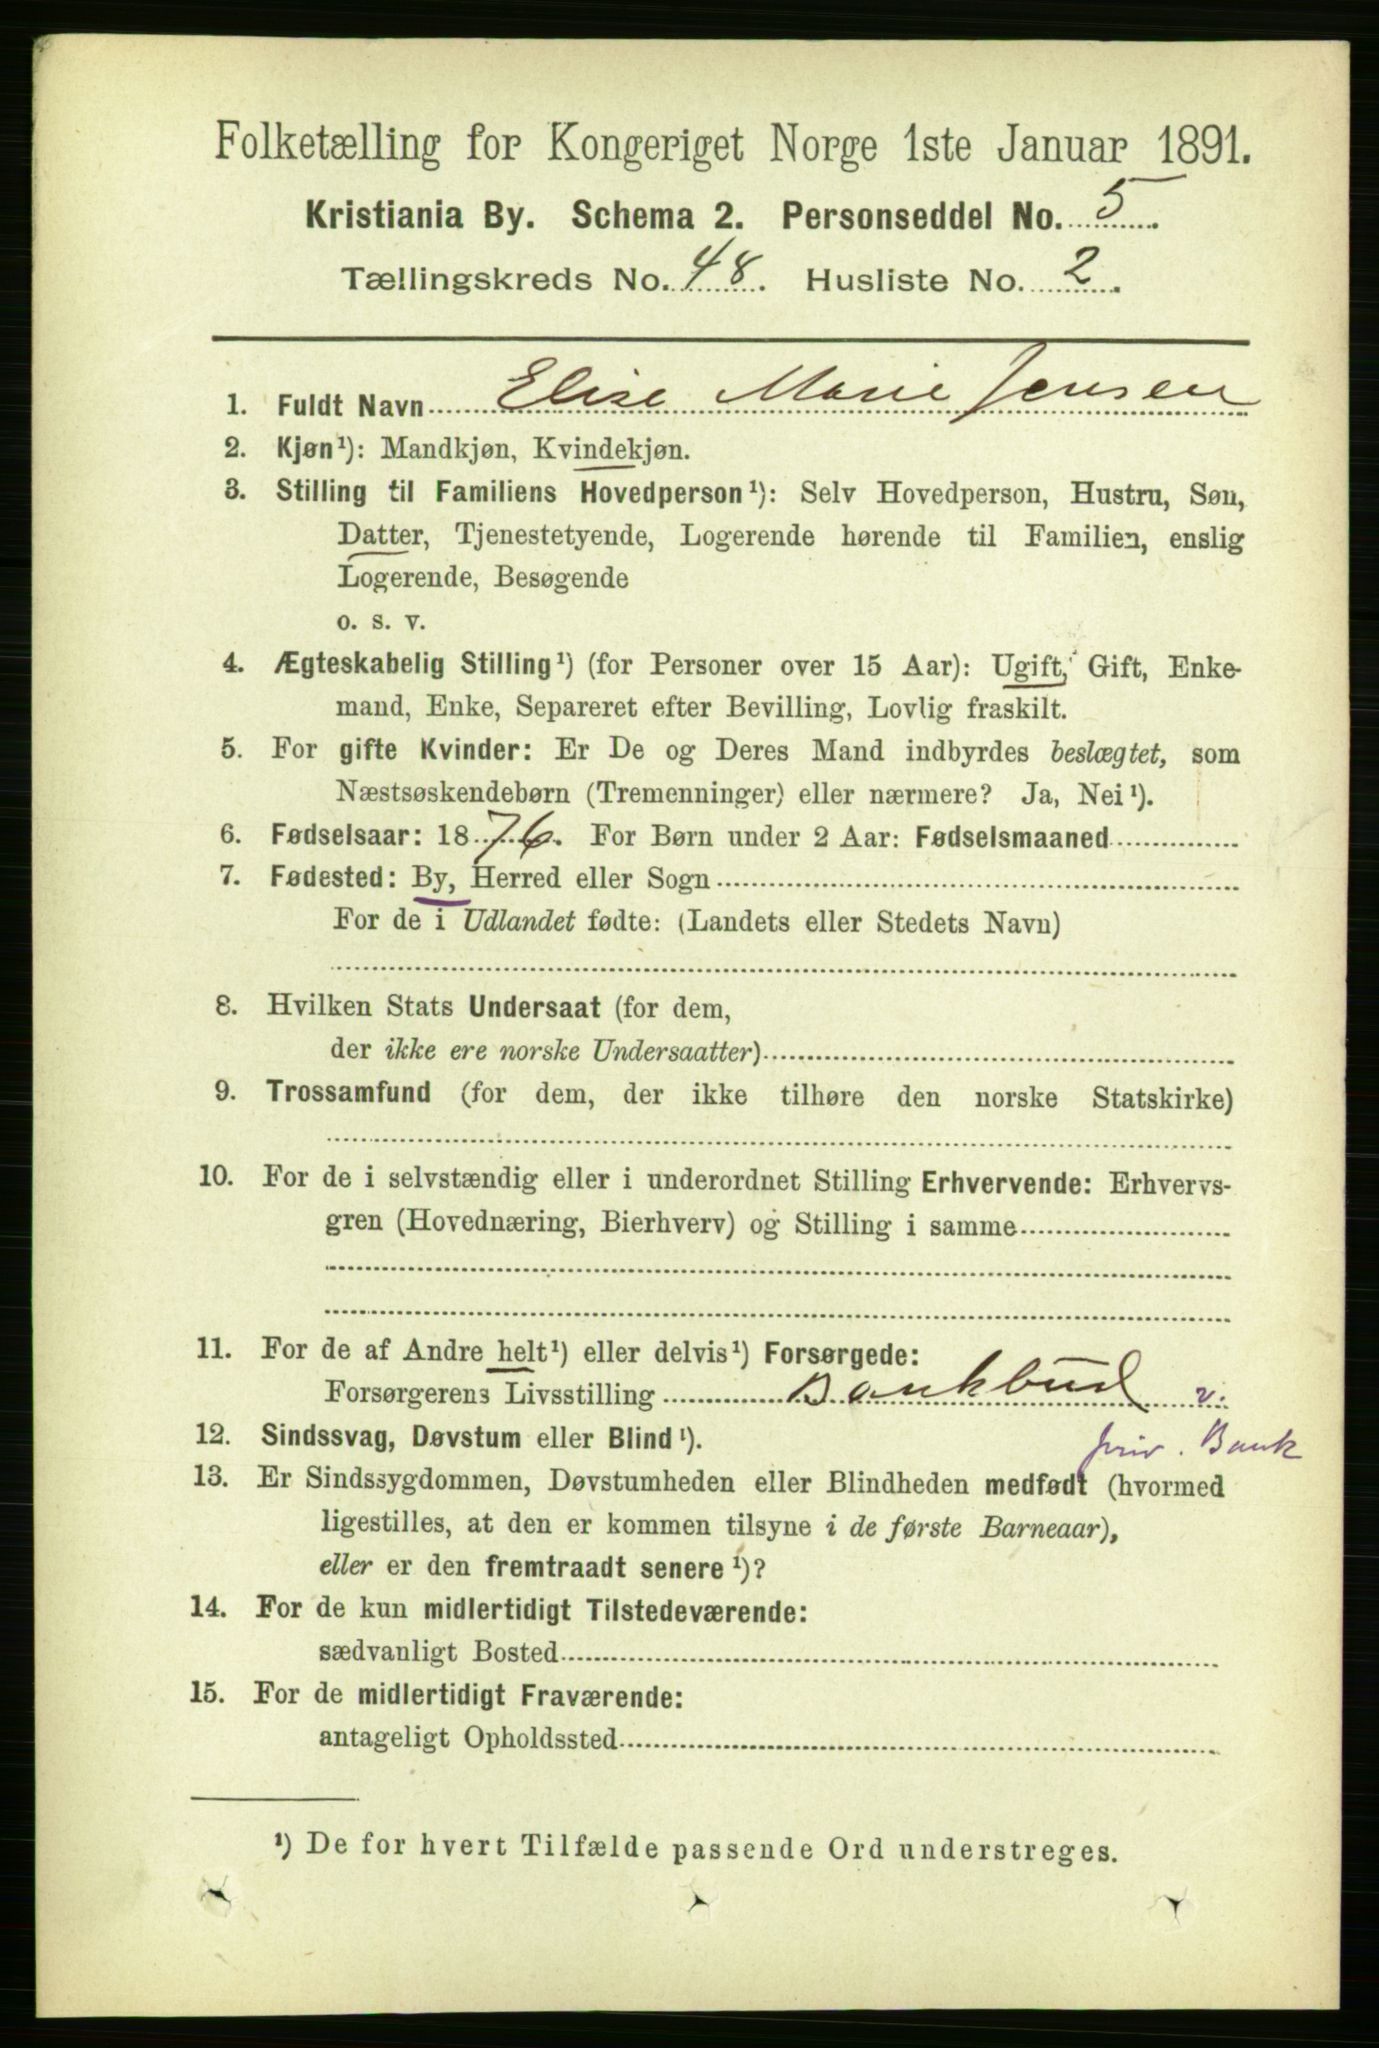 Folketælling for Kongeriget Norge 1ste Januar 1891.
Kristiania By. Schema 2. Personseddel No. 5.
Tællingskreds No. 48. Husliste No. 2.
1. Fuldt Navn Elise Marie Jensen
2. Kjøn¹): Mandkjøn, Kvindekjøn.
3. Stilling til Familiens Hovedperson¹): Selv Hovedperson, Hustru, Søn,
Datter, Tjenestetyende, Logerende hørende til Familien, enslig
Logerende, Besøgende
o. s. v.
4. Ægteskabelig Stilling¹) (for Personer over 15 Aar): Ugift, Gift, Enke-
mand, Enke, Separeret efter Bevilling, Lovlig fraskilt.
5. For gifte Kvinder: Er De og Deres Mand indbyrdes beslægtet, som
Næstsøskendebørn (Tremenninger) eller nærmere? Ja, Nei¹).
6. Fødselsaar: 1876. For Børn under 2 Aar: Fødselsmaaned
7. Fødested: By, Herred eller Sogn
For de i Udlandet fødte: (Landets eller Stedets Navn)
8. Hvilken Stats Undersaat (for dem,
der ikke ere norske Undersaatter)
9. Trossamfund (for dem, der ikke tilhøre den norske Statskirke)
10. For de i selvstændig eller i underordnet Stilling Erhvervende: Erhvervs-
gren (Hovednæring, Bierhverv) og Stilling i samme
11. For de af Andre helt¹) eller delvis¹) Forsørgede:
Forsørgerens Livsstilling Bankbud v.
priv. Bank
12. Sindssvag, Døvstum eller Blind¹).
13. Er Sindssygdommen, Døvstumheden eller Blindheden medfødt (hvormed
ligestilles, at den er kommen tilsyne i de første Barneaar),
eller er den fremtraadt senere¹)?
14. For de kun midlertidigt Tilstedeværende:
sædvanligt Bosted
15. For de midlertidigt Fraværende:
antageligt Opholdssted
¹) De for hvert Tilfælde passende Ord understreges.